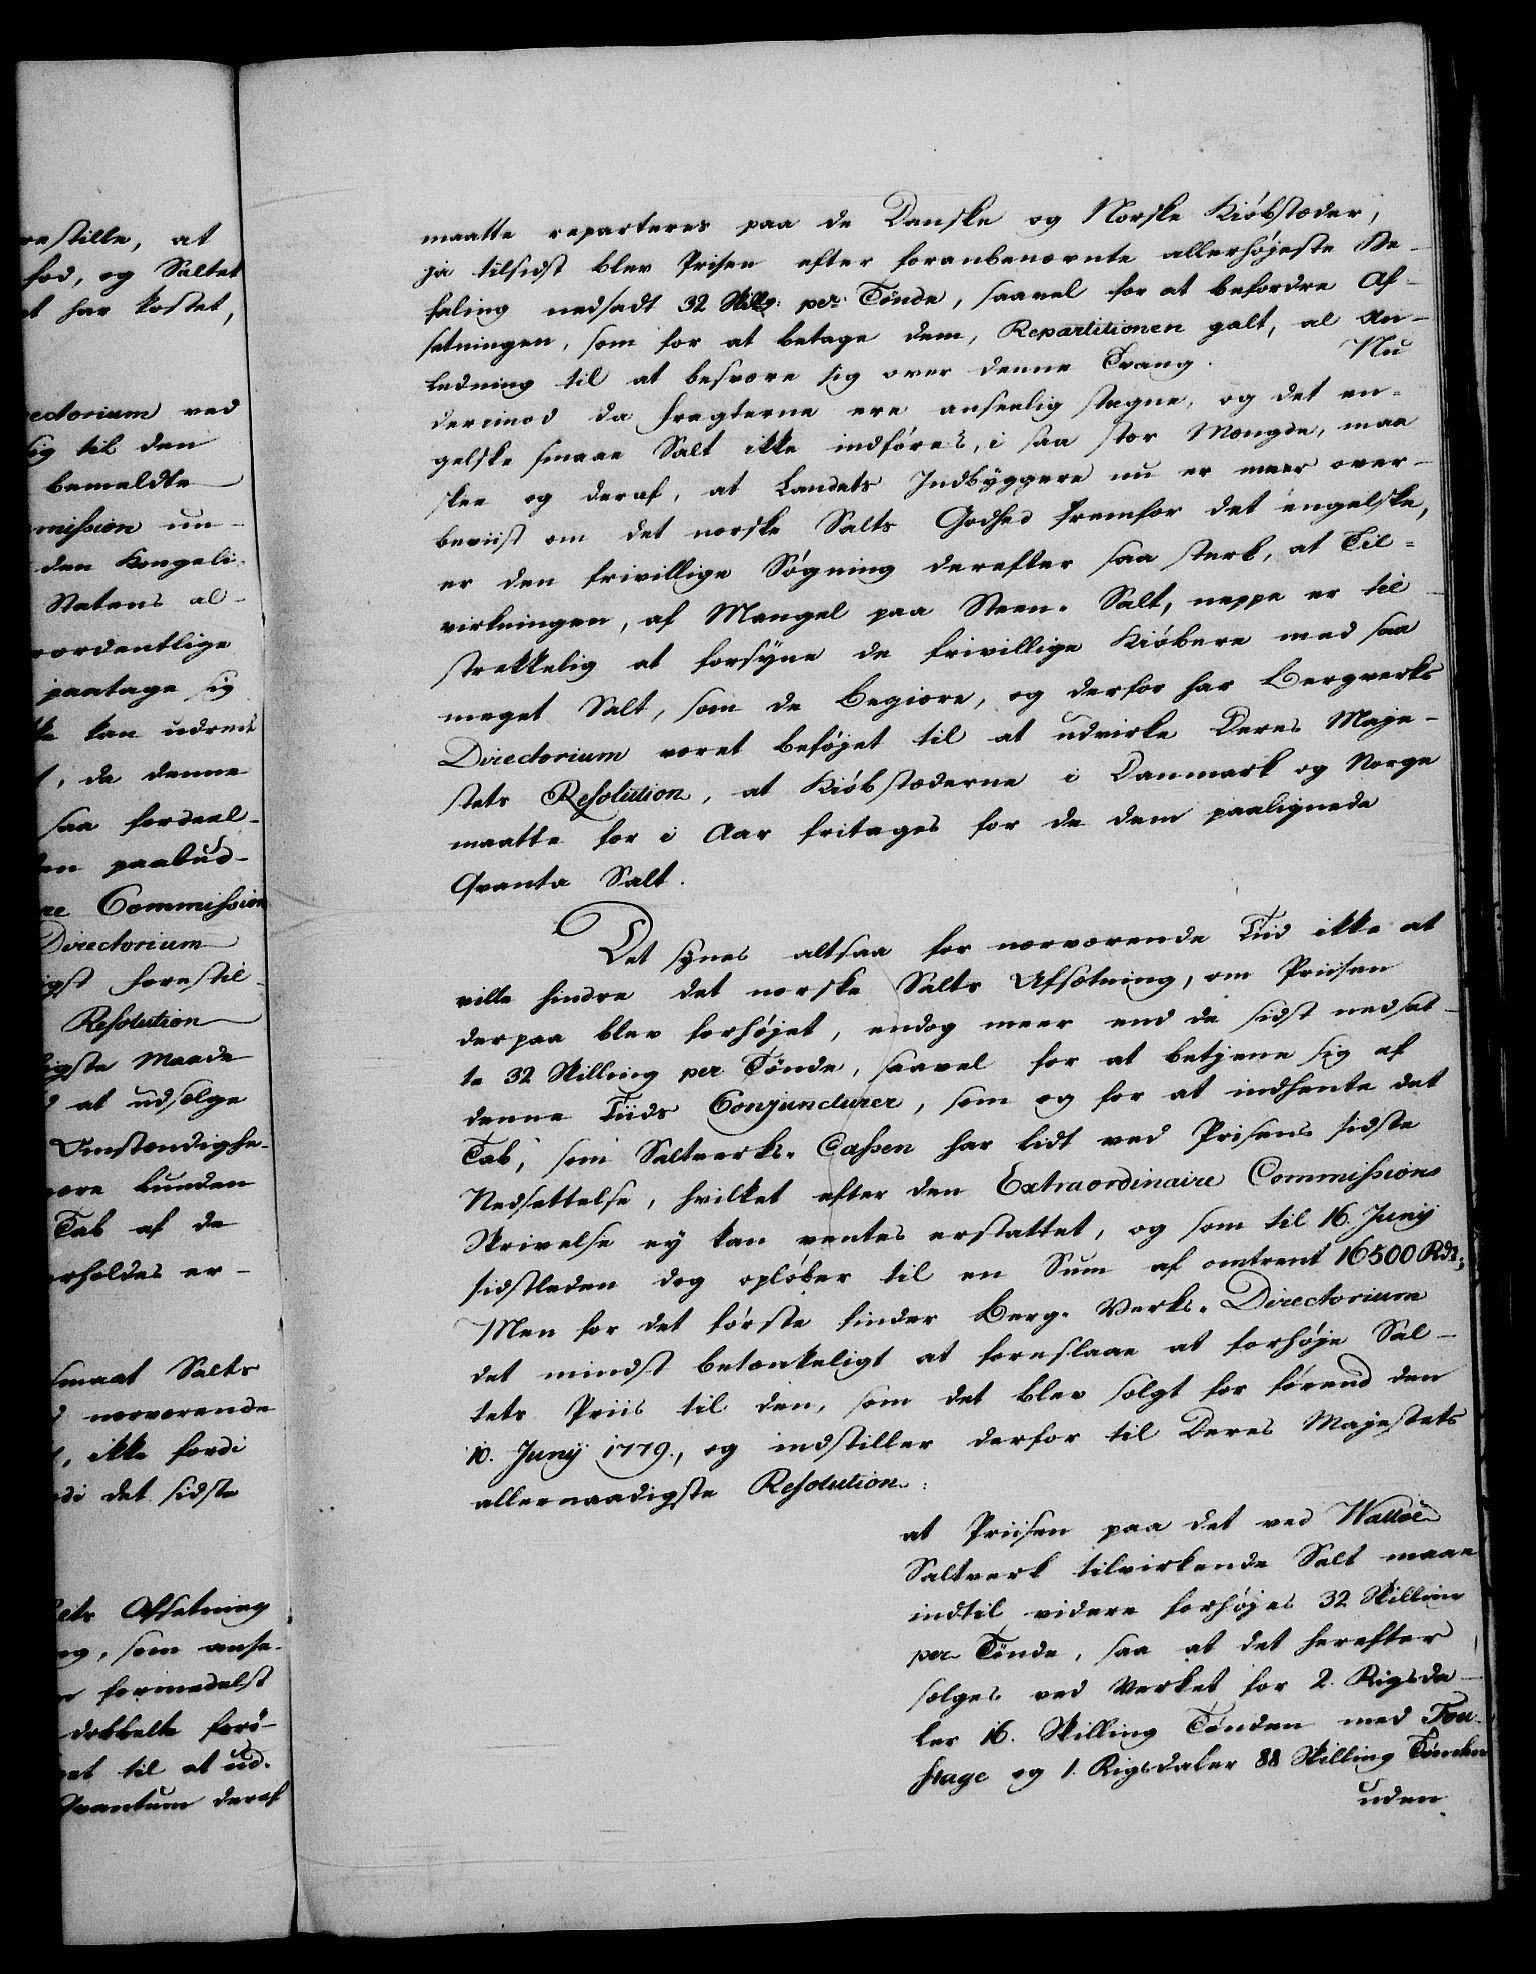 restille, at
fod, og Saltet
et har kostet,
ectorium ved
sig til den
bemeldte
mission un-
den Kongeli-
Statens al-
rordentlige
paatage sig
ke kan udrede
t, da denne
saa fordeel-
en paabud-
re Commission
Directorium
igst forestil-
Resolution
igste Maade
d at udsælge
Omstændighe-
være bunden
Tab af de
erholdes er-
smaat Salts
d nærværende
t, ikke fordi
di det sidste
ets Afsetning
ng, som anse-
formedelst
dobbelte forø-
et til at ud-
Qvantum deraf
maatte reparteres paa de Danske og Norske Kiøbstæder,
ja tilsidst blev Prisen efter foranbenævnte allerhøjeste Be-
faling nedsadt 32 Skillg: per Tønde, saavel for at befordre Af-
setningen, som for at betage dem, Repartitionen galt, al An-
ledning til at besvære sig over denne Tvang. Nu
derimod da fragterne ere anseelig stegne, og det en-
gelske smaae Salt ikke indføres, i saa stor Mængde, maa
skee og deraf, at Landets Indbyggere nu er meer over-
beviist om det norske Salts Godhed fremfor det engelske,
er den frivillige Søgning derefter saa sterk, at Til-
virkningen, af Mangel paa Steen-Salt, neppe er til-
strekkelig at forsyne de frivillige Kiøbere med saa
meget Salt, som de begiøre, og derfor har Bergverks
Directorium været beføjet til at udvirke Deres Maje-
stets Resolution, at Kiøbstæderne i Danmark og Norge
maatte for i Aar fritages for de dem paalignede
Qvanta Salt.
Det synes altsaa for nærværende Tiid ikke at
ville hindre det norske Salts Afsætning, om Priisen
derpaa blev forhøjet, endog meer end de sidst nedsat-
te 32 Skilling per Tønde, saavel for at betjene sig af
denne Tiids Conjuncturer, som og for at indhente det
Tab, som Saltverks-Cassen har lidt ved Prisens sidste
Nedsettelse, hvilket efter den Extraordinaire Commissions
Skrivelse ey kan ventes erstattet, og som til 16. Junij
sidstleden dog opløber til en Sum af omtrent 16500 Rdr;
Men for det første finder Berg-Verks-Directorium
det mindst betænkeligt at foreslaae at forhøje Sal-
tets Priis til den, som det blev solgt for førend den
10. Junij 1779., og indstiller derfor til Deres Majestets
allernaadigste Resolution:
at Priisen paa det ved Walløe
Saltverk tilvirkende Salt maae
indtil videre forhøjes 32 Skilling
per Tønde, saa at det herefter
sælges ved Verket for 2. Rigsda-
ler 16. Skilling Tønden med Fou-
stage og 1. Rigsdaler 88 Skilling Tønden
uden